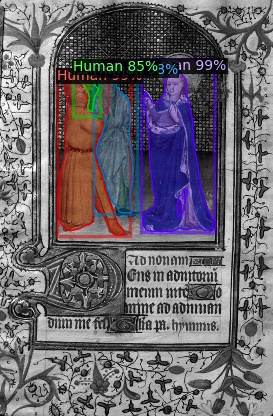 Human 85%
Human 99%
3%
in 99%
Ad nonam
Eus in adiutoriũ
meum inte
o
mine ad adiuuan
dum me fes
lia pr. hymnus.